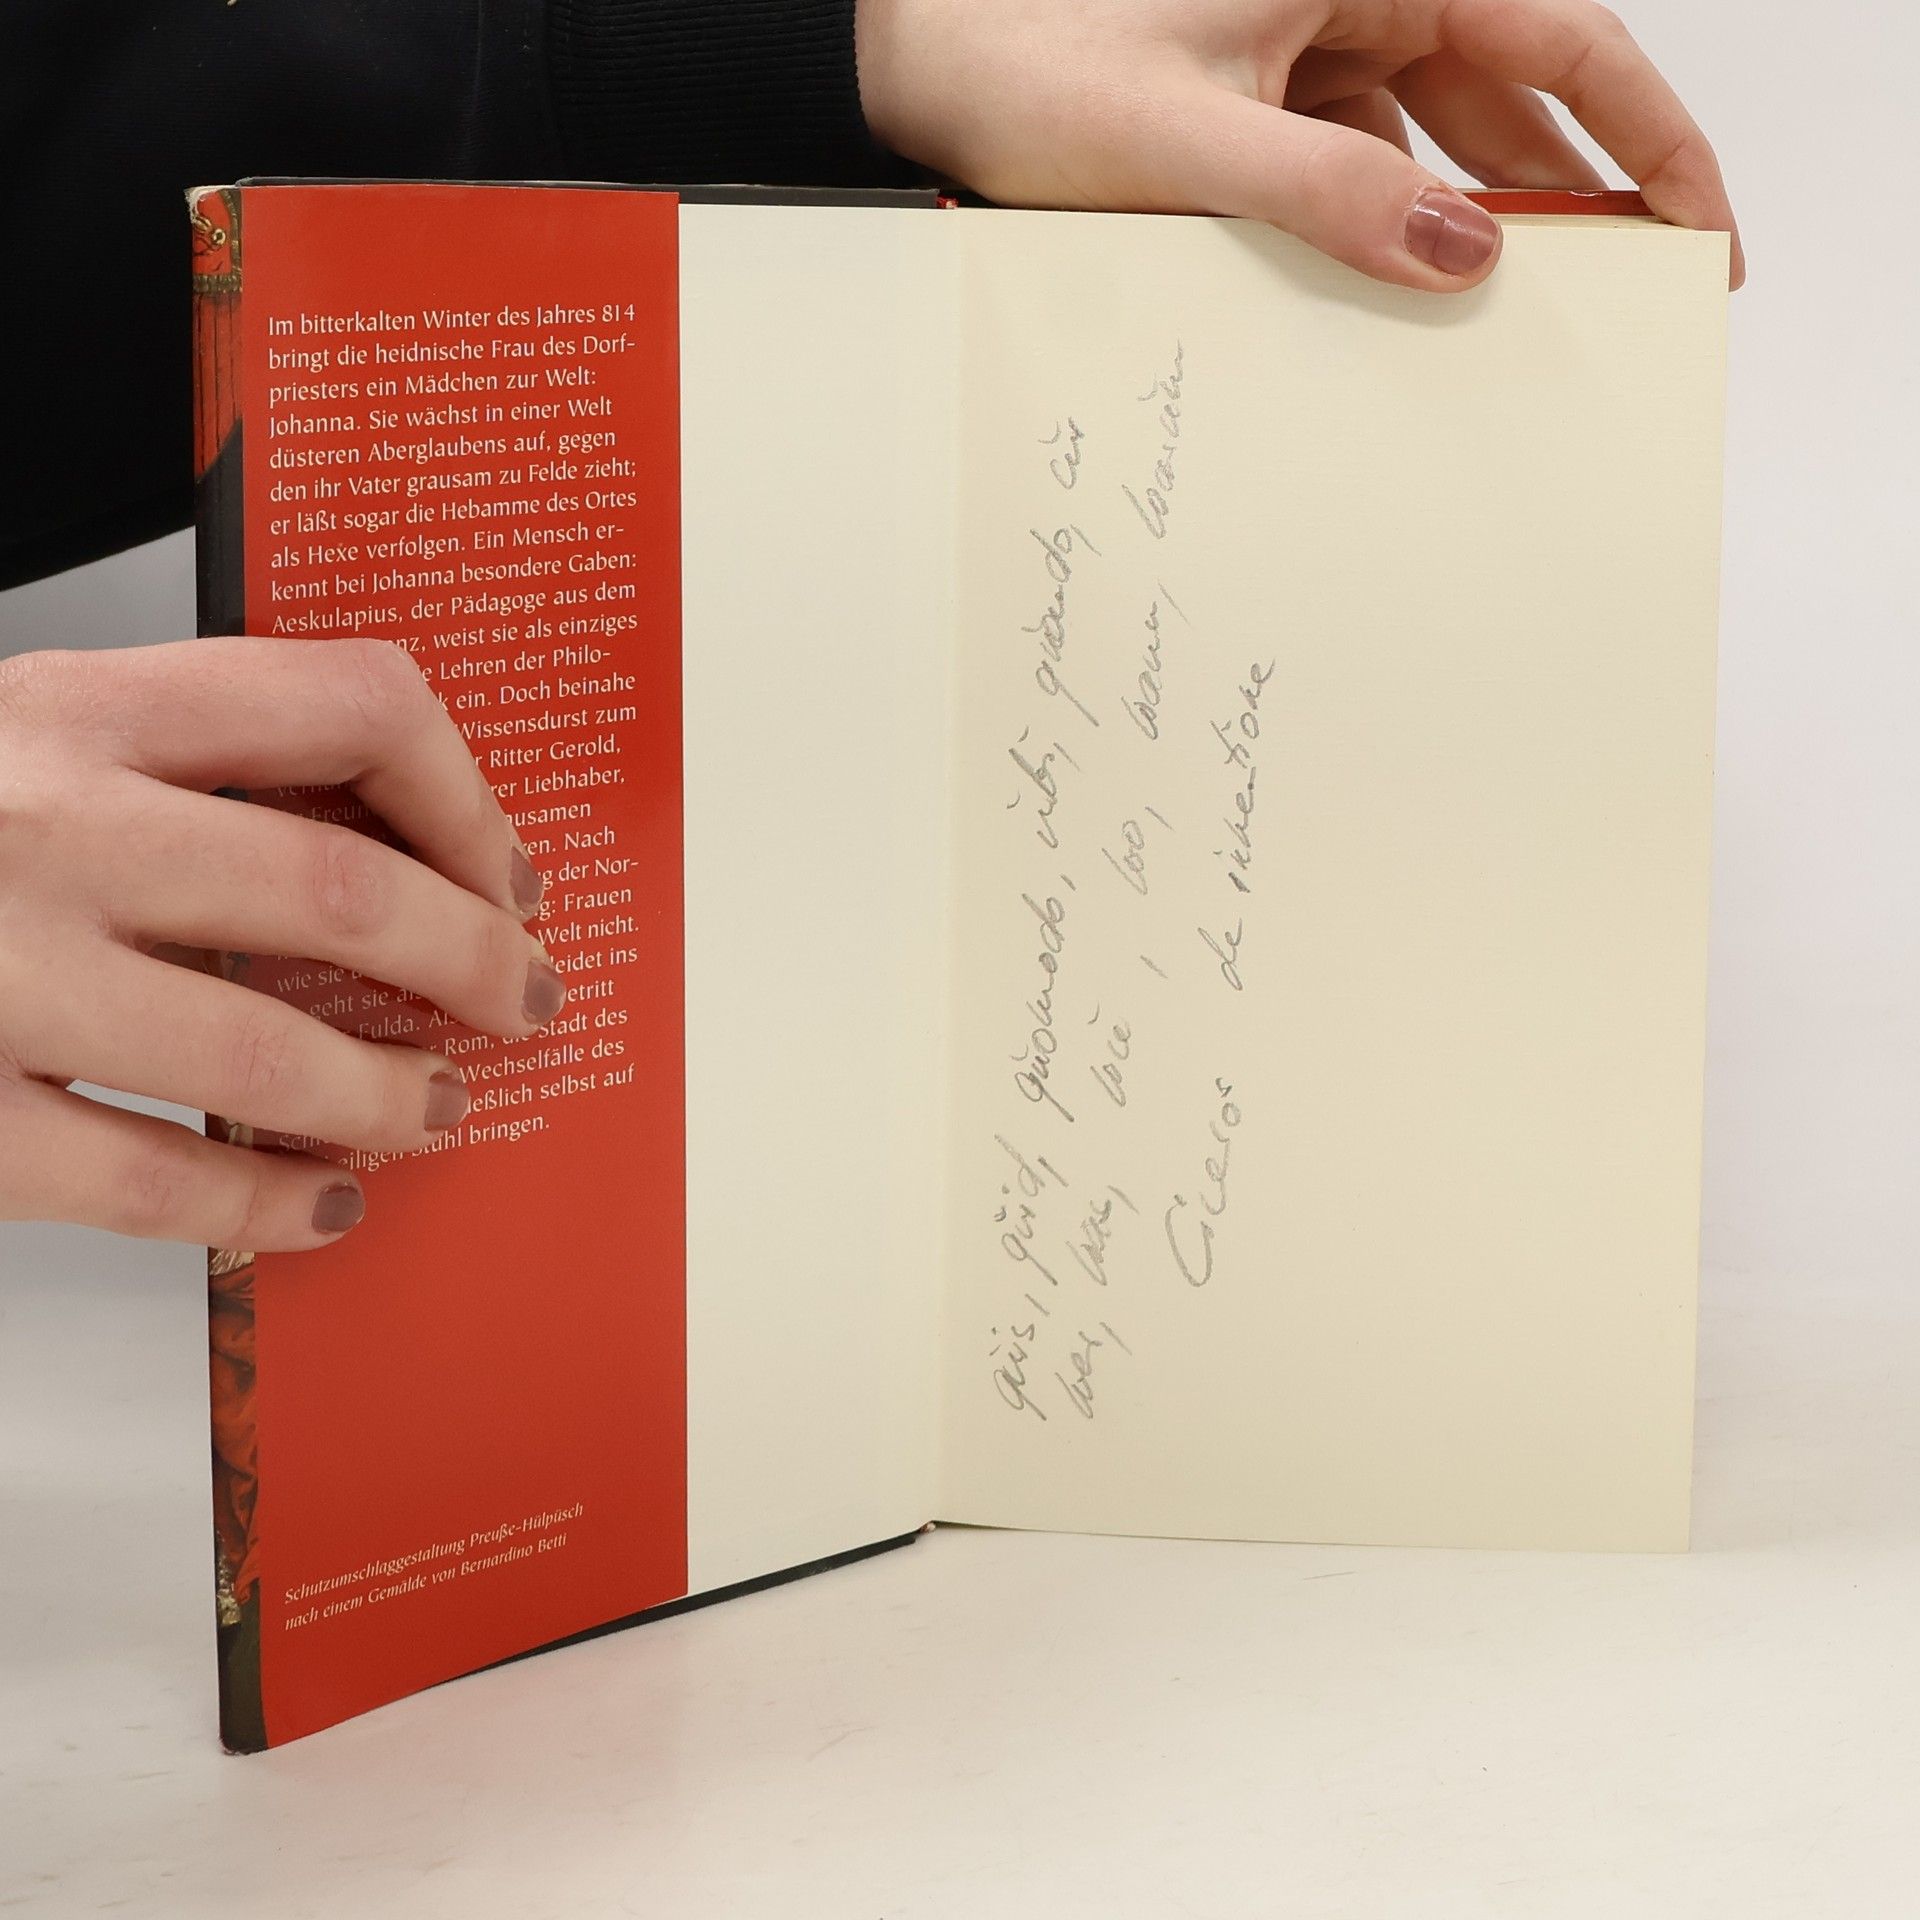 Im bitterkalten Winter des Jahres 814
bringt die heidnische Frau des Dorf-
priesters ein Mädchen zur Welt:
Johanna. Sie wächst in einer Welt
düsteren Aberglaubens auf, gegen
den ihr Vater grausam zu Felde zieht;
er läßt sogar die Hebamme des Ortes
als Hexe verfolgen. Ein Mensch er-
kennt bei Johanna besondere Gaben:
Aeskulapius, der Pädagoge aus dem
weist sie als einziges
Lehren der Philo-
ein. Doch beinahe
Wissensdurst zum
Ritter Gerold,
Liebhaber,
Nach
der Nor-
Frauen
Welt nicht.
wie sie ins
geht sie
Fulda.
Rom, Stadt des
Wechselfälle des
selbst auf
bringen.
Schutzumschlaggestaltung Preuße-Hülpüsch
nach einem Gemälde von Bernardino Betti
quis, quid, quomodo, ubi, quando, cur
wer, was, wie, wo, wann, warum
Ciceros de inventione